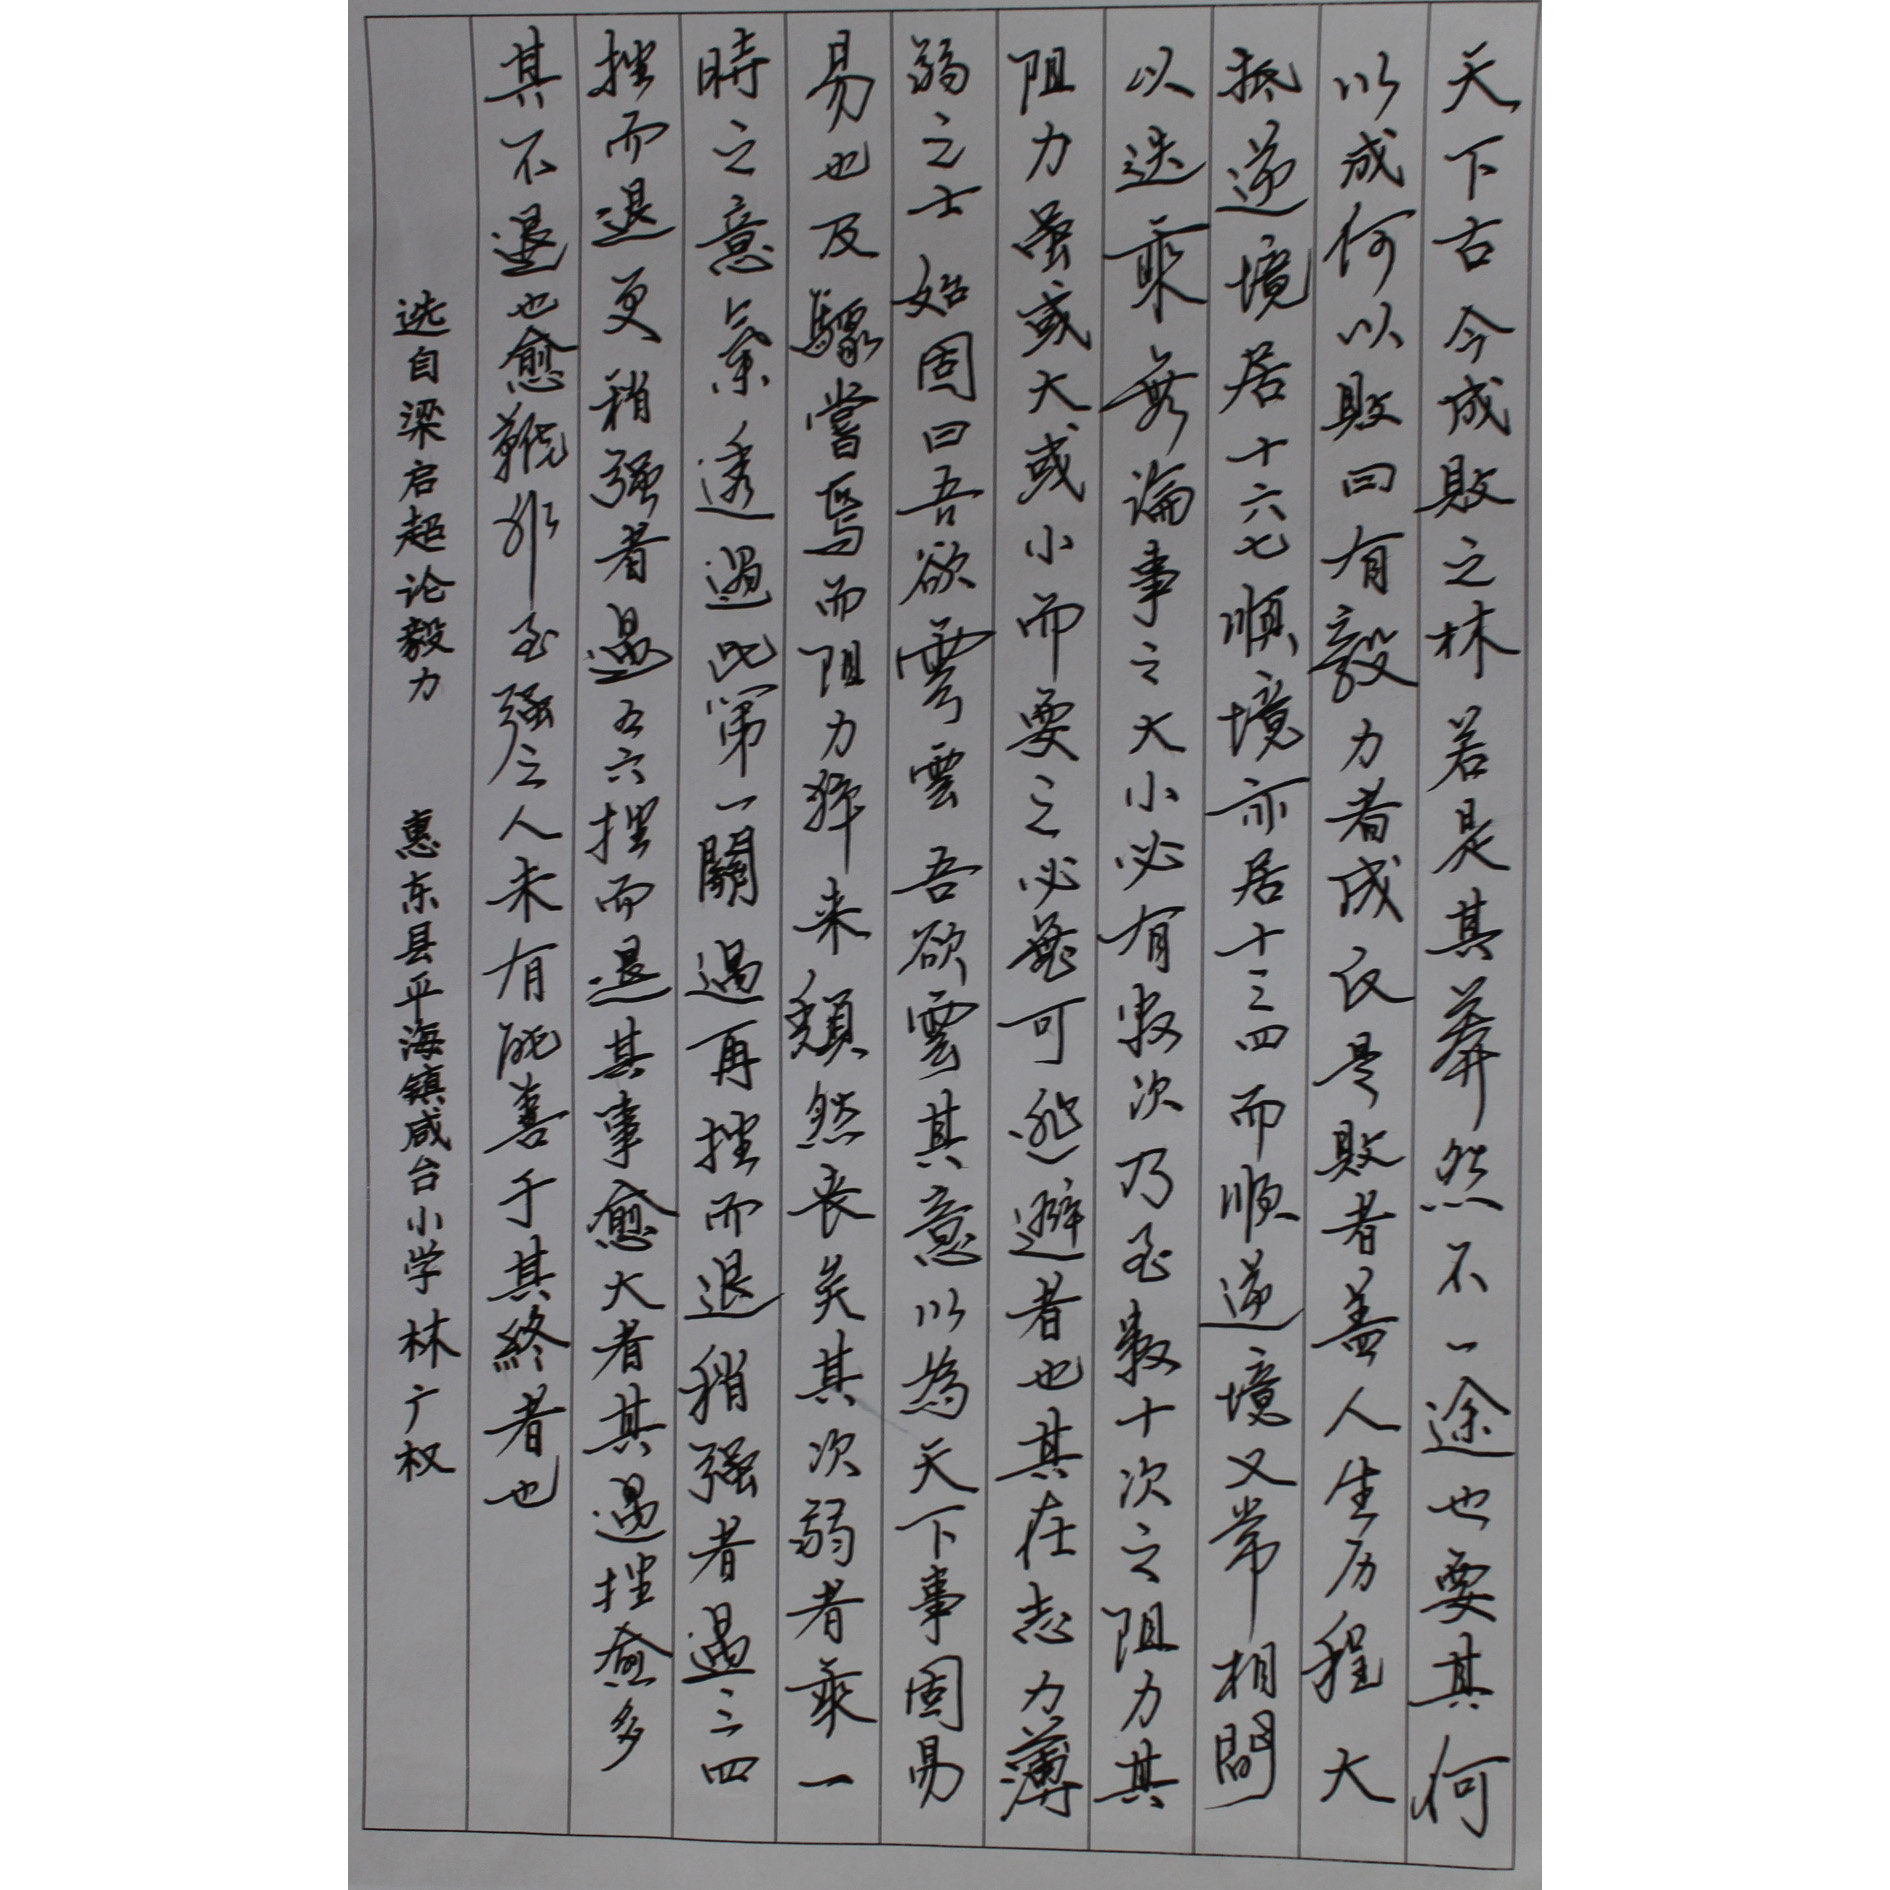 天下古今成敗之林若是其莽然不一途也要其何
以成何以敗曰有毅力者成反是敗者蓋人生历程大
抵逆境居十六七順境亦居十三四而順逆境又常相間
以迭乘無論事之大小必有数次乃至数十次之阻力其
阻力虽或大或小而要之必無可逃避者也其在志力薄
弱之士始固曰吾欲雲雲吾欲雲其意以為天下事固易
易也及驟嘗焉而阻力猝来頹然丧矣其次弱者乘一
時之意氣透過此第一關遇再挫而退稍强者遇三四
挫而退更稍强者遇五六挫而退其事愈大者其遇挫愈多
其不退也愈難非至强之人未有能善于其終者也
选自梁启超论毅力 惠东县平海镇咸台小学林广权